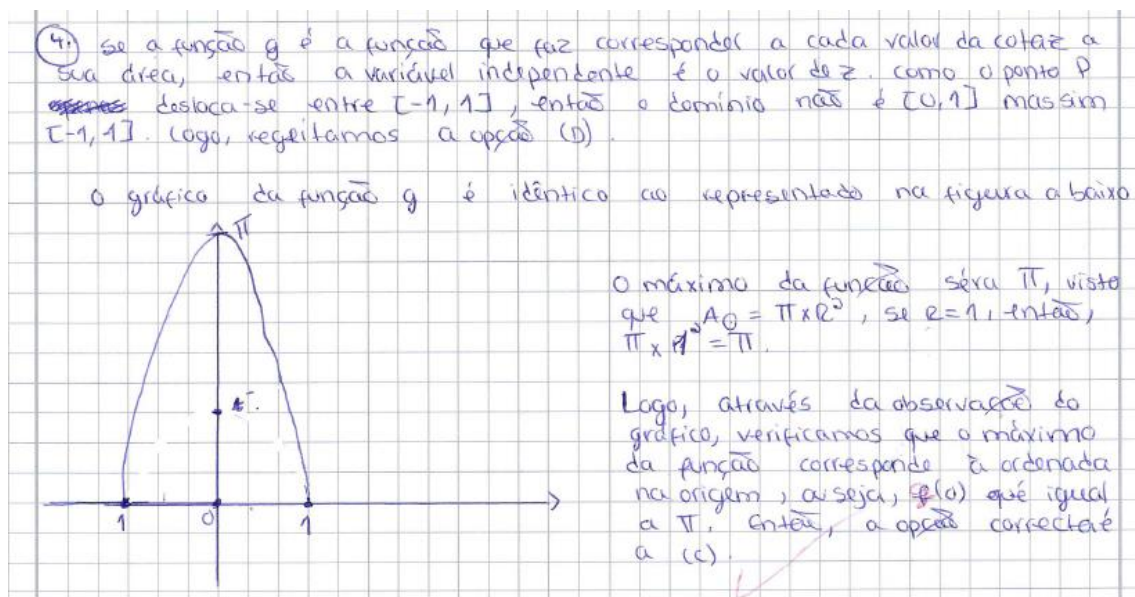 4.) se a função g é a função que faz corresponder a cada valor da cota z a
sua área, então a variável independente é o valor de z. como o ponto P
desloca-se entre [-1, 1], então o domínio não é [0,1] mas sim
[-1, 1]. Logo, regeitamos a opção (D).
O gráfico da função g é idêntico ao representado na figura a baixo
π
1
0
1
O máximo da função séra π, visto
que A○ = π×R², se R=1, então,
π × 1² = π.
Logo, através da observação do
gráfico, verificamos que o máximo
da função corresponde à ordenada
na origem, ou seja, g(0) que é igual
a π. Então, a opção correcta é
a (C).